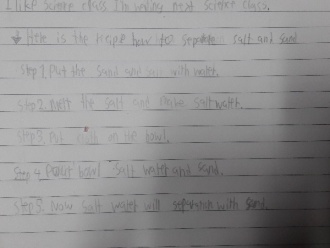 I like Science class I'm waiting next Science class.
Here is the recipe how to separate salt and sand
Step 1. Put the sand and salt with water.
Step 2. Melt the salt and make saltwater.
Step 3. Put on the bowl.
Step 4. Pour bowl salt water and sand.
Step 5. Now salt water will separate with sand.